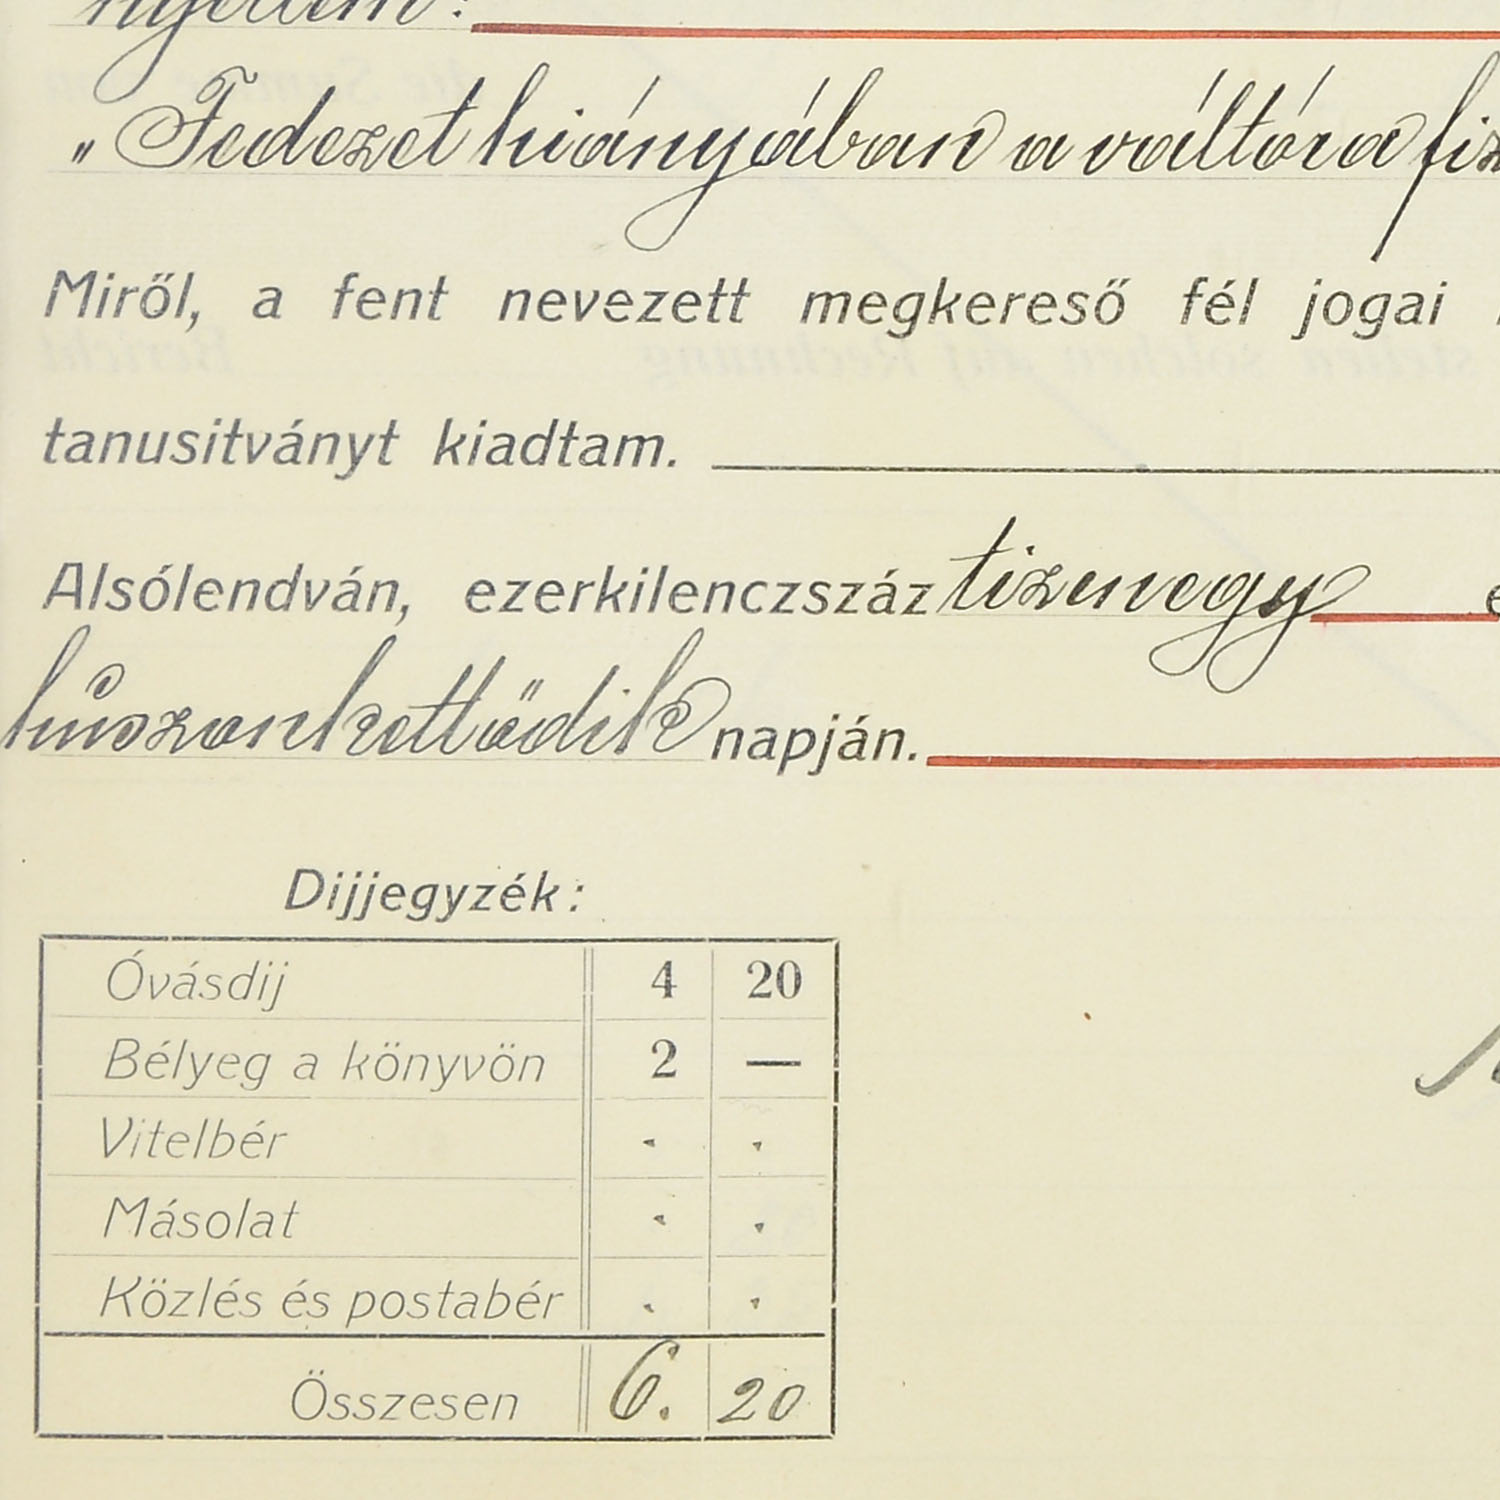 nyertem:
„Fedezet hiányában a váltóra
Miről, a fent nevezett megkereső fél jogai
tanusitványt kiadtam.
Alsólendván, ezerkilenczszáz tizenegy
húszonkettődik napján.
Dijjegyzék:
Óvásdij 4 20
Bélyeg a könyvön 2 —
Vitelbér . .
Másolat . .
Közlés és postabér . .
Összesen 6. 20